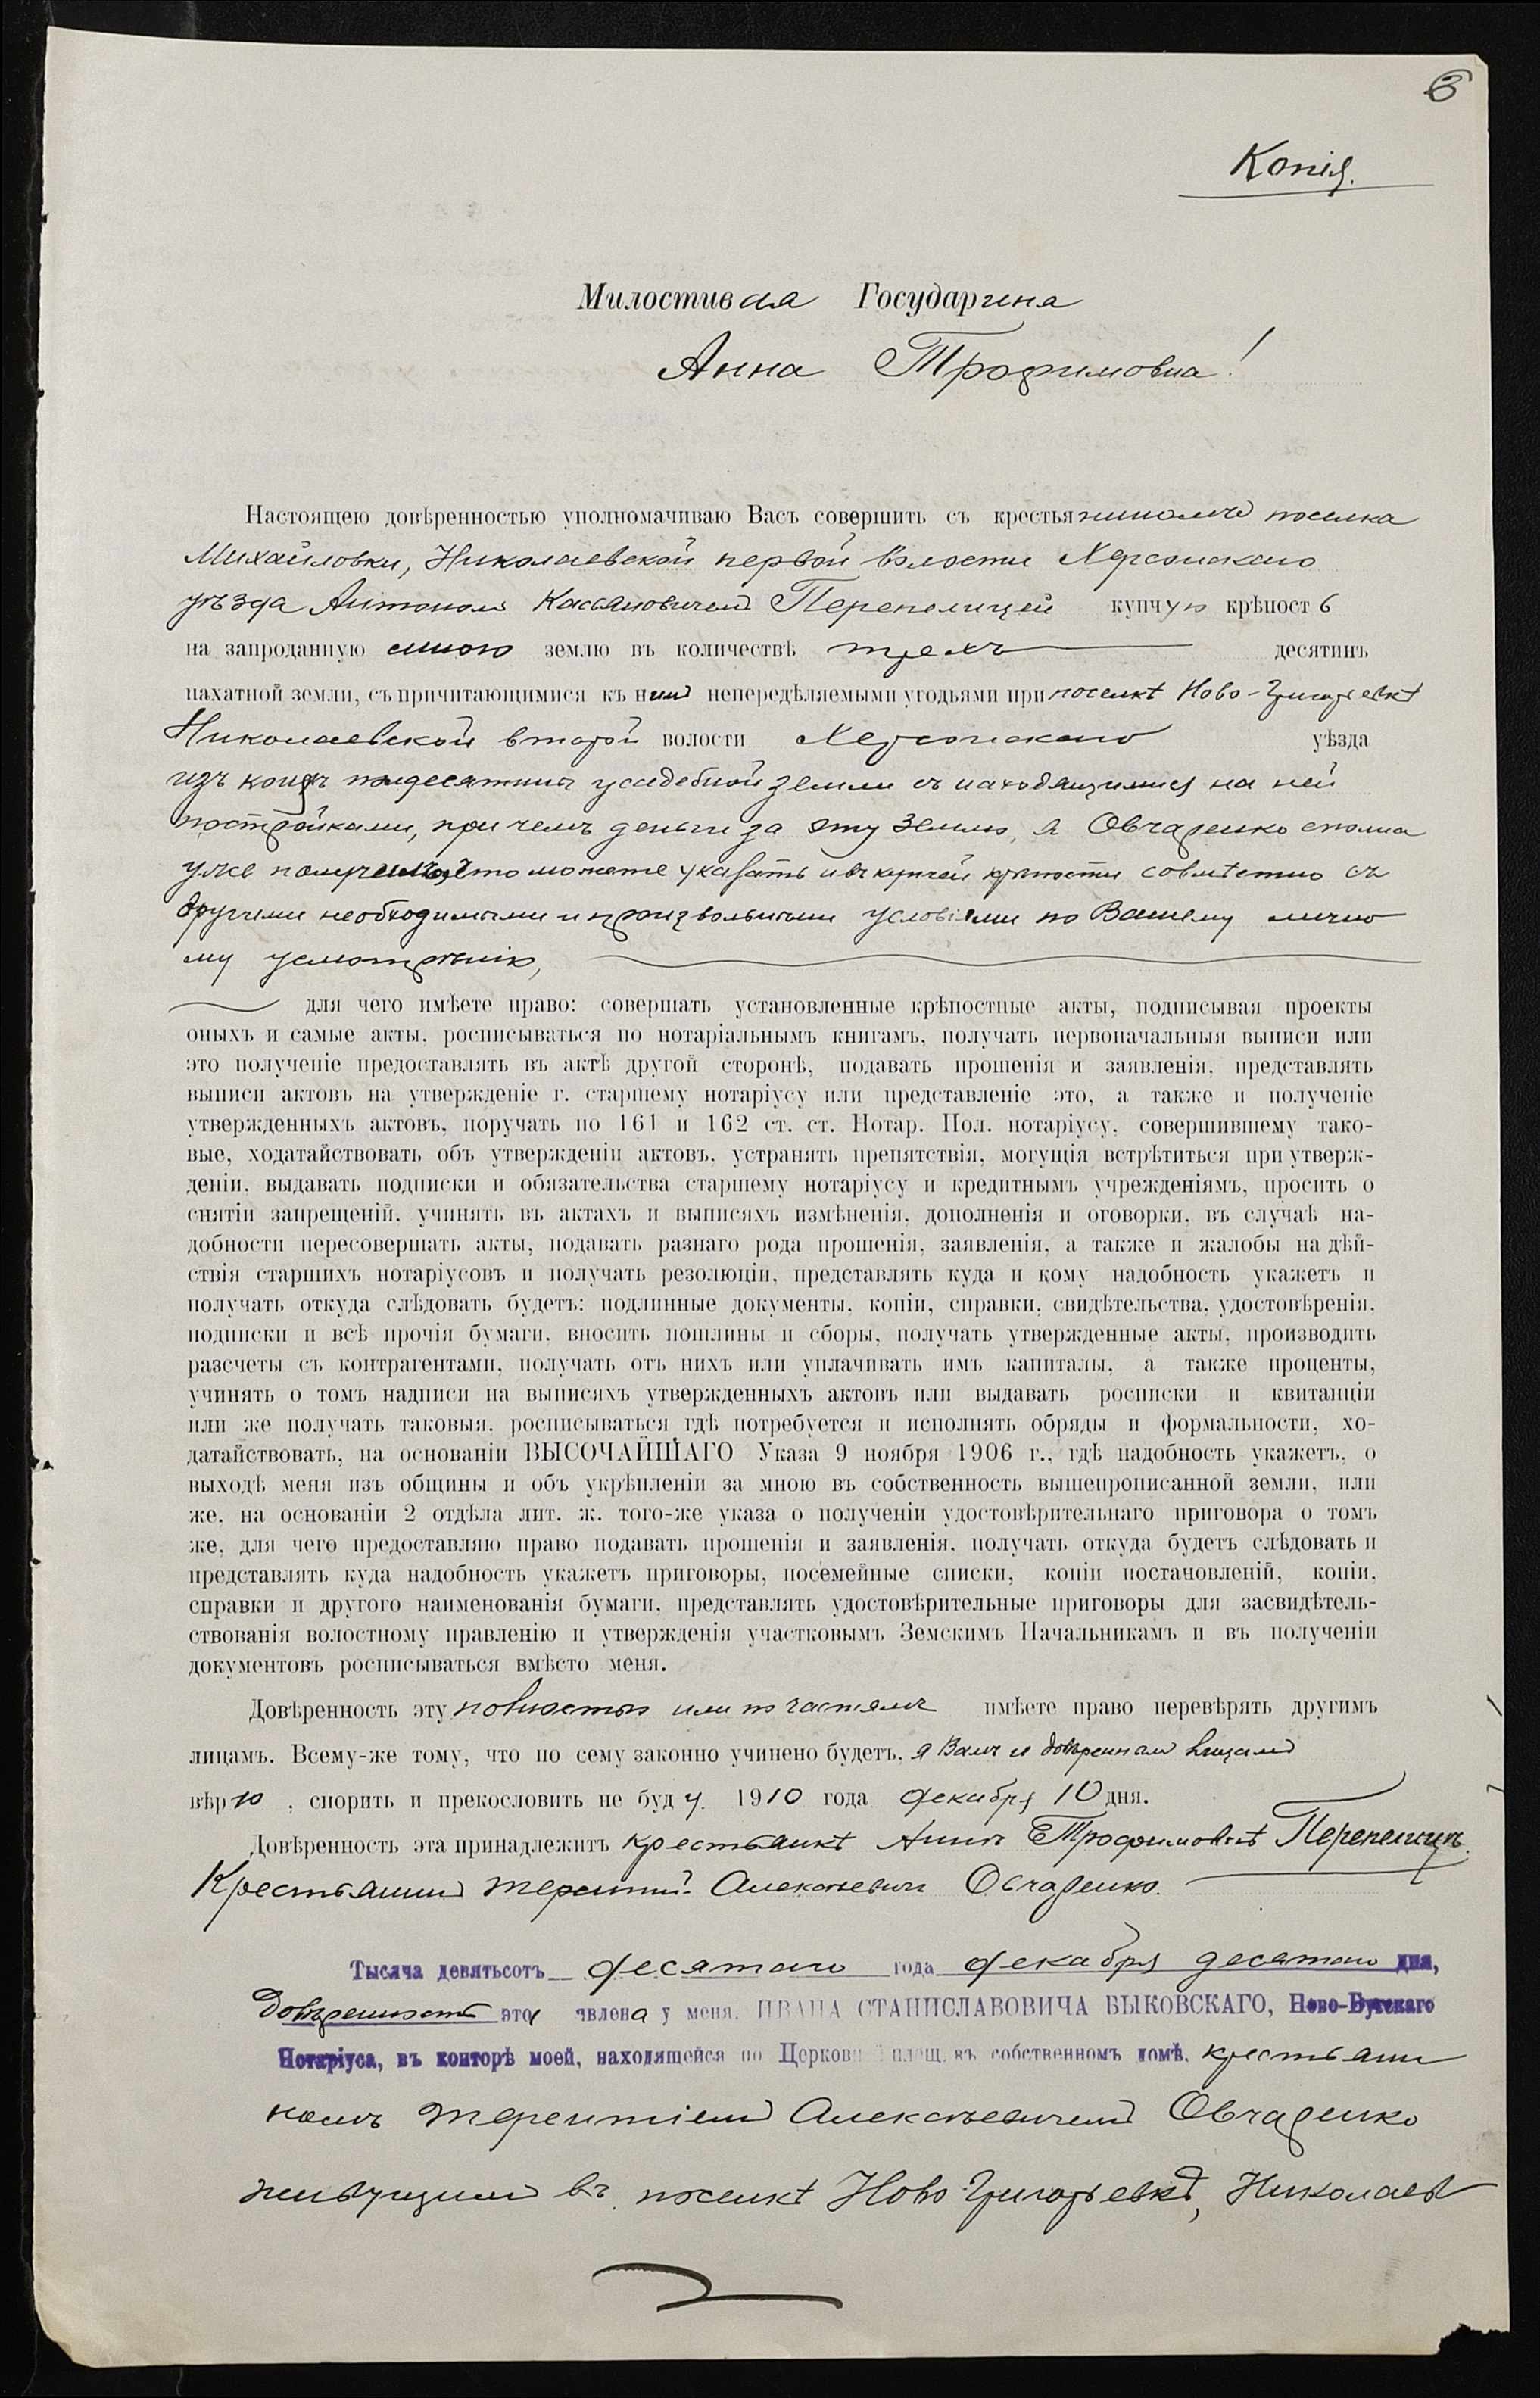 6
Копія.
Милостивая Государиня
Анна Трофимовна!
Настоящею довѣренностью уполномачиваю Васъ совершить съ крестьяниномъ поселка
Михайловки, Николаевской первой волости Херсонскаго
уѣзда Антономъ Касьяновичемъ Перепелицей купчую крѣпость
на запроданную мною землю въ количествѣ трехъ десятинъ
пахатной земли, съ причитающимися къ ним непередѣляемыми угодьями при поселкѣ Ново-Григорьевкѣ
Николаевской второй волости Херсонскаго уѣзда
изъ коихъ полдесятины усадебной земли съ находящимися на ней
постройками, при чемъ деньги за эту землю, я Овчаренко сполна
уже получилъ, что можете указать и въ купчей крѣпости совмѣстно съ
другими необходимыми и произвольными условіями по Вашему лично
му усмотрѣнію,
для чего имѣете право: совершать установленные крѣпостные акты, подписывая проекты
оныхъ и самые акты, росписываться по нотаріальнымъ книгамъ, получать первоначальныя выписи или
это полученіе предоставлять въ актѣ другой сторонѣ, подавать прошенія и заявленія, представлять
выписи актовъ на утвержденіе г. старшему нотаріусу или представленіе это, а также и полученіе
утвержденныхъ актовъ, поручать по 161 и 162 ст. ст. Нотар. Пол. нотаріусу, совершившему тако-
вые, ходатайствовать объ утвержденіи актовъ, устранять препятствія, могущія встрѣтиться при утверж-
деніи, выдавать подписки и обязательства старшему нотаріусу и кредитнымъ учрежденіямъ, просить о
снятіи запрещеній, учинять въ актахъ и выписяхъ измѣненія, дополненія и оговорки, въ случаѣ на-
добности пересовершать акты, подавать разнаго рода прошенія, заявленія, а также и жалобы на дѣй-
ствія старшихъ нотаріусовъ и получать резолюціи, представлять куда и кому надобность укажетъ и
получать откуда слѣдовать будетъ: подлинные документы, копіи, справки, свидѣтельства, удостовѣренія,
подписки и всѣ прочія бумаги, вносить пошлины и сборы, получать утвержденные акты, производить
разсчеты съ контрагентами, получать отъ нихъ или уплачивать имъ капиталы, а также проценты,
учинять о томъ надписи на выписяхъ утвержденныхъ актовъ или выдавать росписки и квитанціи
или же получать таковыя, росписываться гдѣ потребуется и исполнять обряды и формальности, хо-
датайствовать, на основаніи ВЫСОЧАЙШАГО Указа 9 ноября 1906 г., гдѣ надобность укажетъ, о
выходѣ меня изъ общины и объ укрѣпленіи за мною въ собственность вышепрописанной земли, или
же, на основаніи 2 отдѣла лит. ж. того-же указа о полученіи удостовѣрительнаго приговора о томъ
же, для чего предоставляю право подавать прошенія и заявленія, получать откуда будетъ слѣдовать и
представлять куда надобность укажетъ приговоры, посемейные списки, копіи постановленій, копіи,
справки и другого наименованія бумаги, представлять удостовѣрительные приговоры для засвидѣтель-
ствованія волостному правленію и утвержденія участковымъ Земскимъ Начальникамъ и въ полученіи
документовъ росписываться вмѣсто меня.
Довѣренность эту полностью или по частямъ имѣете право перевѣрять другимъ
лицамъ. Всему-же тому, что по сему законно учинено будетъ, я Вамъ и довѣреннымъ Вашимъ
вѣрю, спорить и прекословить не буду. 1910 года декабря 10 дня.
Довѣренность эта принадлежитъ крестьянкѣ Аннѣ Трофимовнѣ Перепелицѣ.
Крестьянинъ Терентій Алексѣевичъ Овчаренко.
Тысяча девятьсотъ десятаго года декабря десятаго дня,
довѣренность эта явлена у меня, ИВАНА СТАНИСЛАВОВИЧА БЫКОВСКАГО, Ново-Бугскаго
Нотаріуса, въ конторѣ моей, находящейся по Церковной площ. въ собственномъ домѣ, крестьяни
номъ Терентіемъ Алексѣевичемъ Овчаренко
живущимъ въ поселкѣ Ново Григорьевкѣ, Николаев